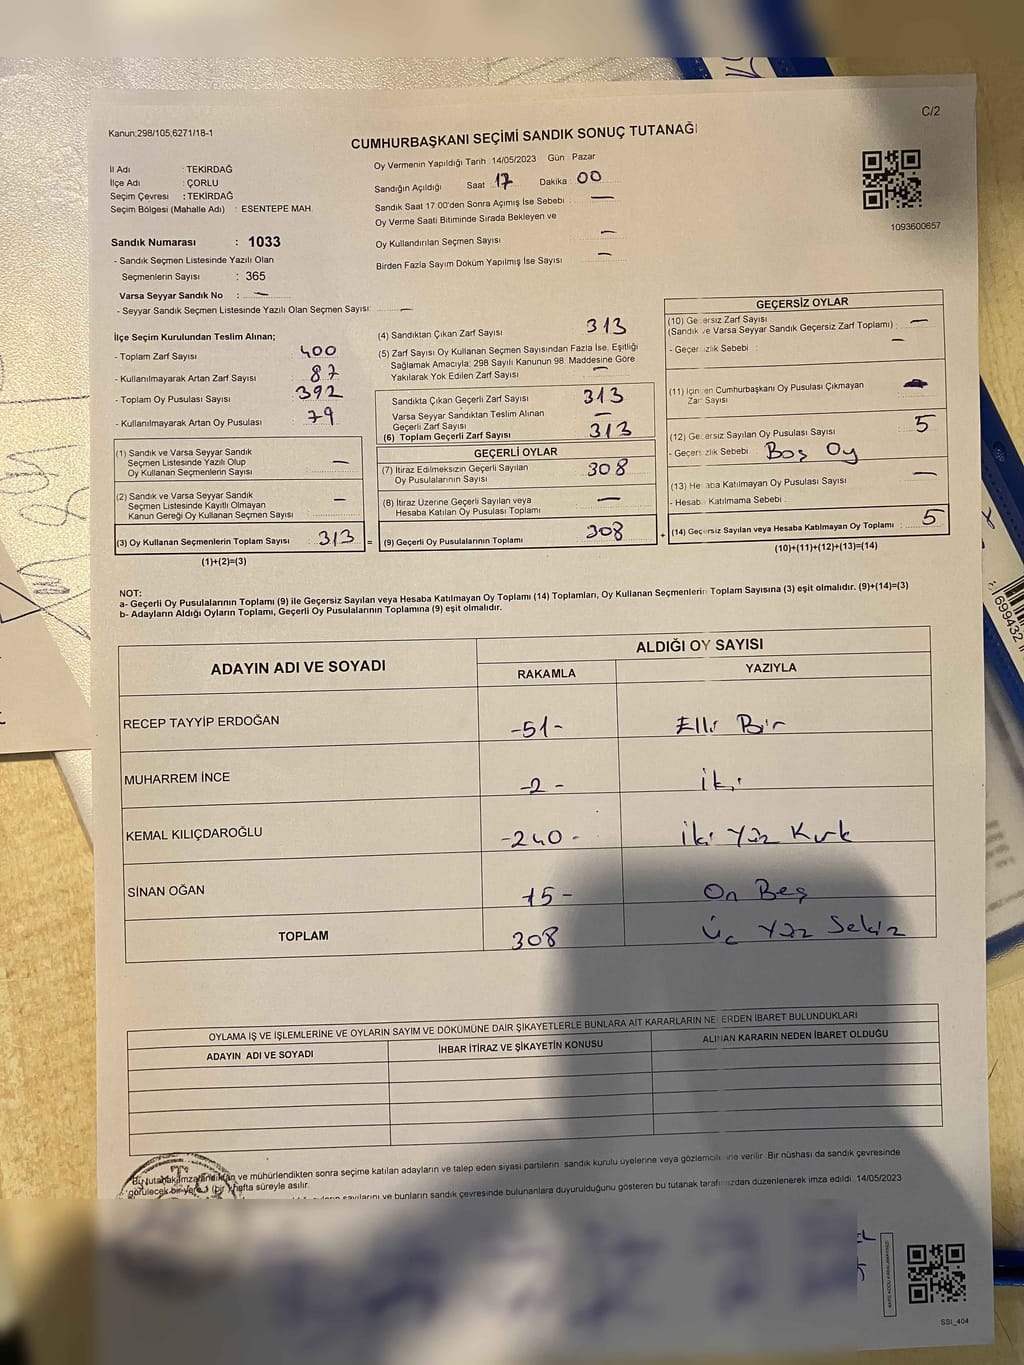 C/2
Kanun:298/105,6271/18-1
CUMHURBAŞKANI SEÇİMİ SANDIK SONUÇ TUTANAĞI
İl Adı : TEKİRDAĞ
İlçe Adı : ÇORLU
Seçim Çevresi : TEKİRDAĞ
Seçim Bölgesi (Mahalle Adı) : ESENTEPE MAH.
Sandık Numarası : 1033
- Sandık Seçmen Listesinde Yazılı Olan
Seçmenlerin Sayısı : 365
Varsa Seyyar Sandık No : —
- Seyyar Sandık Seçmen Listesinde Yazılı Olan Seçmen Sayısı: —
Oy Vermenin Yapıldığı Tarih : 14/05/2023 Gün : Pazar
Sandığın Açıldığı Saat : 17 Dakika : 00
Sandık Saat 17:00'den Sonra Açımış İse Sebebi : —
Oy Verme Saati Bitiminde Sırada Bekleyen ve
Oy Kullandırılan Seçmen Sayısı : —
Birden Fazla Sayım Döküm Yapılmış İse Sayısı : —
1093600657
İlçe Seçim Kurulundan Teslim Alınan;
- Toplam Zarf Sayısı : 400
- Kullanılmayarak Artan Zarf Sayısı : 87
- Toplam Oy Pusulası Sayısı : 392
- Kullanılmayarak Artan Oy Pusulası : 79
(1) Sandık ve Varsa Seyyar Sandık
Seçmen Listesinde Yazılı Olup
Oy Kullanan Seçmenlerin Sayısı —
(2) Sandık ve Varsa Seyyar Sandık
Seçmen Listesinde Kayıtlı Olmayan
Kanun Gereği Oy Kullanan Seçmen Sayısı —
(3) Oy Kullanan Seçmenlerin Toplam Sayısı : 313 =
(1)+(2)=(3)
(4) Sandıktan Çıkan Zarf Sayısı : 313
(5) Zarf Sayısı Oy Kullanan Seçmen Sayısından Fazla İse, Eşitliği
Sağlamak Amacıyla; 298 Sayılı Kanunun 98. Maddesine Göre
Yakılarak Yok Edilen Zarf Sayısı : —
Sandıkta Çıkan Geçerli Zarf Sayısı : 313
Varsa Seyyar Sandıktan Teslim Alınan
Geçerli Zarf Sayısı : —
(6) Toplam Geçerli Zarf Sayısı : 313
GEÇERLİ OYLAR
(7) İtiraz Edilmeksizin Geçerli Sayılan
Oy Pusulalarının Sayısı : 308
(8) İtiraz Üzerine Geçerli Sayılan veya
Hesaba Katılan Oy Pusulası Toplamı : —
(9) Geçerli Oy Pusulalarının Toplamı : 308 +
GEÇERSİZ OYLAR
(10) Geçersiz Zarf Sayısı
(Sandık ve Varsa Seyyar Sandık Geçersiz Zarf Toplamı) : —
- Geçersizlik Sebebi : —
(11) İçinden Cumhurbaşkanı Oy Pusulası Çıkmayan
Zarf Sayısı :
(12) Geçersiz Sayılan Oy Pusulası Sayısı : 5
- Geçersizlik Sebebi : Boş Oy
(13) Hesaba Katılmayan Oy Pusulası Sayısı : —
- Hesaba Katılmama Sebebi :
(14) Geçersiz Sayılan veya Hesaba Katılmayan Oy Toplamı : 5
(10)+(11)+(12)+(13)=(14)
NOT:
a- Geçerli Oy Pusulalarının Toplamı (9) ile Geçersiz Sayılan veya Hesaba Katılmayan Oy Toplamı (14) Toplamları, Oy Kullanan Seçmenlerin Toplam Sayısına (3) eşit olmalıdır. (9)+(14)=(3)
b- Adayların Aldığı Oyların Toplamı, Geçerli Oy Pusulalarının Toplamına (9) eşit olmalıdır.
ADAYIN ADI VE SOYADI
ALDIĞI OY SAYISI
RAKAMLA YAZIYLA
RECEP TAYYİP ERDOĞAN -51- Elli Bir
MUHARREM İNCE -2- İki
KEMAL KILIÇDAROĞLU -240- İki Yüz Kırk
SİNAN OĞAN -15- On Beş
TOPLAM 308 Üç Yüz Sekiz
OYLAMA İŞ VE İŞLEMLERİNE VE OYLARIN SAYIM VE DÖKÜMÜNE DAİR ŞİKAYETLERLE BUNLARA AİT KARARLARIN NELERDEN İBARET BULUNDUKLARI
ADAYIN ADI VE SOYADI İHBAR İTİRAZ VE ŞİKAYETİN KONUSU ALINAN KARARIN NEDEN İBARET OLDUĞU
Bu tutanak imzalandıktan ve mühürlendikten sonra seçime katılan adayların ve talep eden siyasi partilerin sandık kurulu üyelerine veya gözlemcilerine verilir. Bir nüshası da sandık çevresinde
görülecek bir yere 1 (bir) hafta süreyle asılır.
sayılarını ve bunların sandık çevresinde bulunanlara duyurulduğunu gösteren bu tutanak tarafımızdan düzenlenerek imza edildi. 14/05/2023
SSI_404
699432